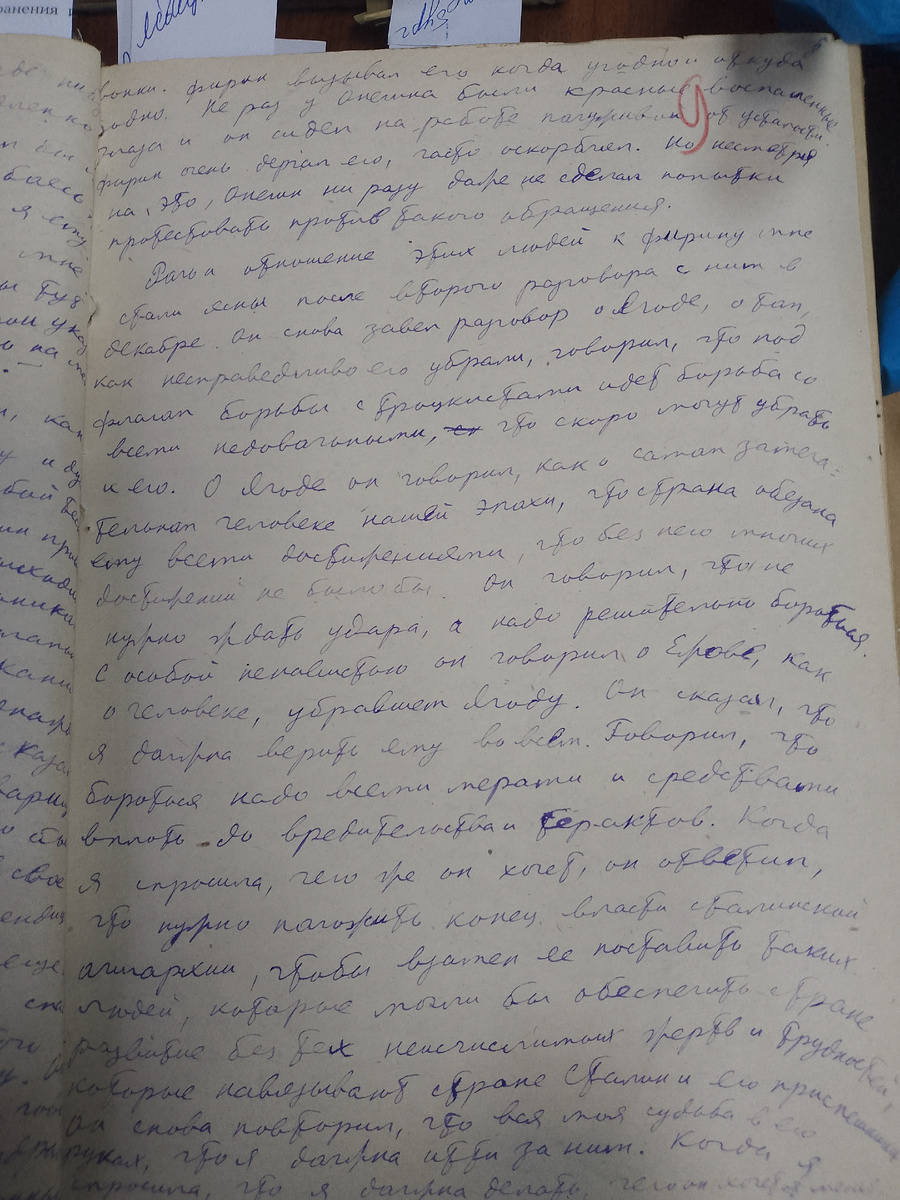 ранения и
вонки. Фирин вызывал его когда угодно и откуда
угодно. Не раз у Онегина были красные воспаленные
глаза и он сидел на работе полуживой от усталости.
Фирин очень дергал его, часто оскорблял. Но несмотря
на, это, Онегин ни разу даже не сделал попытки
протестовать против такого обращения.
Роль и отношение этих людей к Фирину мне
стали ясны после второго разговора с ним в
декабре. Он снова завел разговор о Ягоде, о том,
как несправедливо его убрали, говорил, что под
флагом борьбы с троцкистами идет борьба со
всеми недовольными, что скоро могут убрать
и его. О Ягоде он говорил, как о самом замеча=
тельном человеке нашей эпохи, что страна обязана
ему всеми достижениями, что без него многих
достижений не было бы. Он говорил, что не
нужно ждать удара, а надо решительно бороться.
С особой ненавистью он говорил о Ежове, как
о человеке, убравшем Ягоду. Он сказал, что
я должна верить ему во всем. Говорил, что
бороться надо всеми мерами и средствами
вплоть до вредительства и терактов. Когда
я спросила, чего же он хочет, он ответил,
что нужно положить конец власти сталинской
олигархии, чтобы взамен ее поставить таких
людей, которые могли бы обеспечить стране
развитие без тех неисчислимых жертв и трудностей,
которые навязывают стране Сталин и его приспешники
Он снова повторил, что вся моя судьба в его
руках, что я должна итти за ним. Когда я
спросила, что я должна делать, чего он хочет от меня